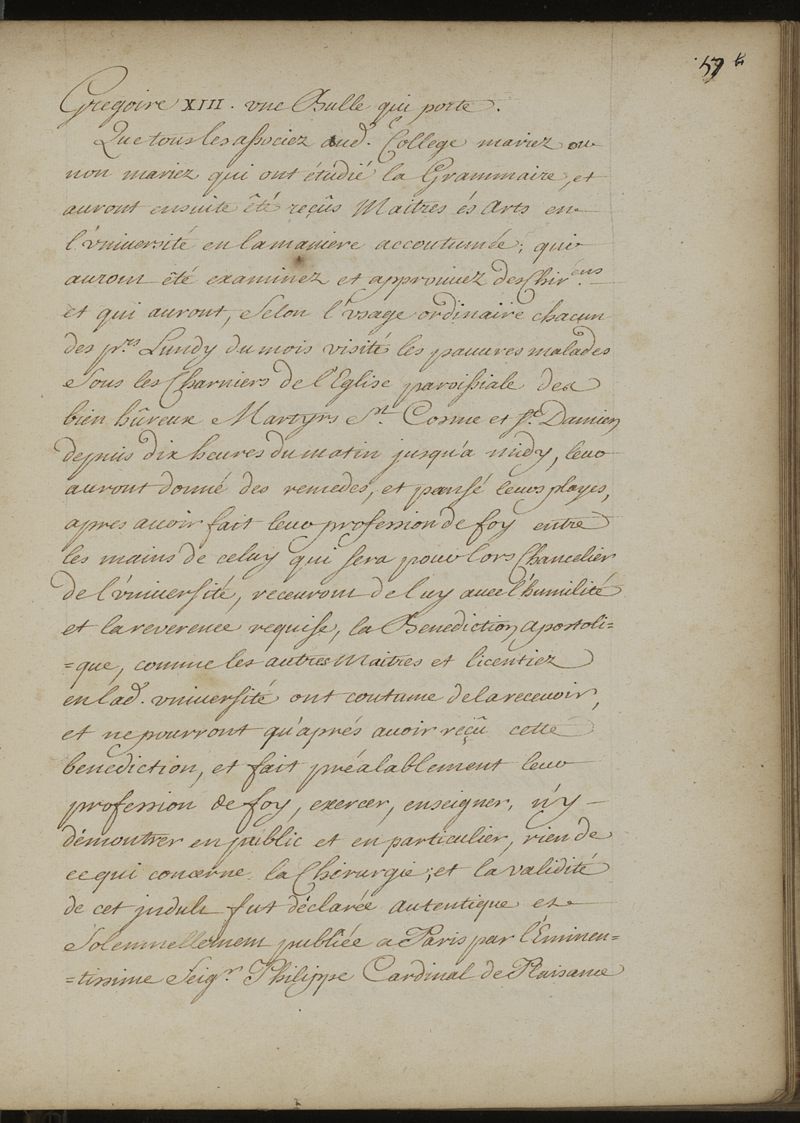 59
Gregoire XIII. vne Bulle qui porte.
Que tous les associez aud. College mariez ou
non mariez qui ont étudié la Grammaire, et
auront ensuite êté reçûs Maitres és Arts en
l'vniversité en la maniere accoutumée; qui
auront êté examinez et approuuez des Chir.ens
et qui auront, selon l'vsage ordinaire chacun
des p.rs Lundy du mois visité les pauures malades
sous les Charniers de l'Eglise paroissiale des
bien hûreux Martyrs S.t Cosme et S.t Damien
depuis dix heures du matin jusqu'a midy, leur
auront donné des remedes, et pansé leurs playes,
apres auoir fait leur profession de foy entre
les mains de celuy qui sera pour lors Chancelier
de l'vniuersité, receuront de luy auec l'humilité
et la reverence requise, la Benediction Apostoli=
=que, comme les autres Maitres et licentiez
en lad. vniuersité ont coutume de la receuoir,
et ne pourront qu'aprés auoir reçû cette
benediction, et fait préalablement leur
profession de foy, exercer, enseigner, n'y
démontrer en public et en particulier, rien de
ce qui concerne la Chirurgie; et la validité
de cet indult fut déclarée autentique et
Solemnellement publiée a Paris par l'Eminen=
=tissime Seig.r Philippe Cardinal de Plaisance